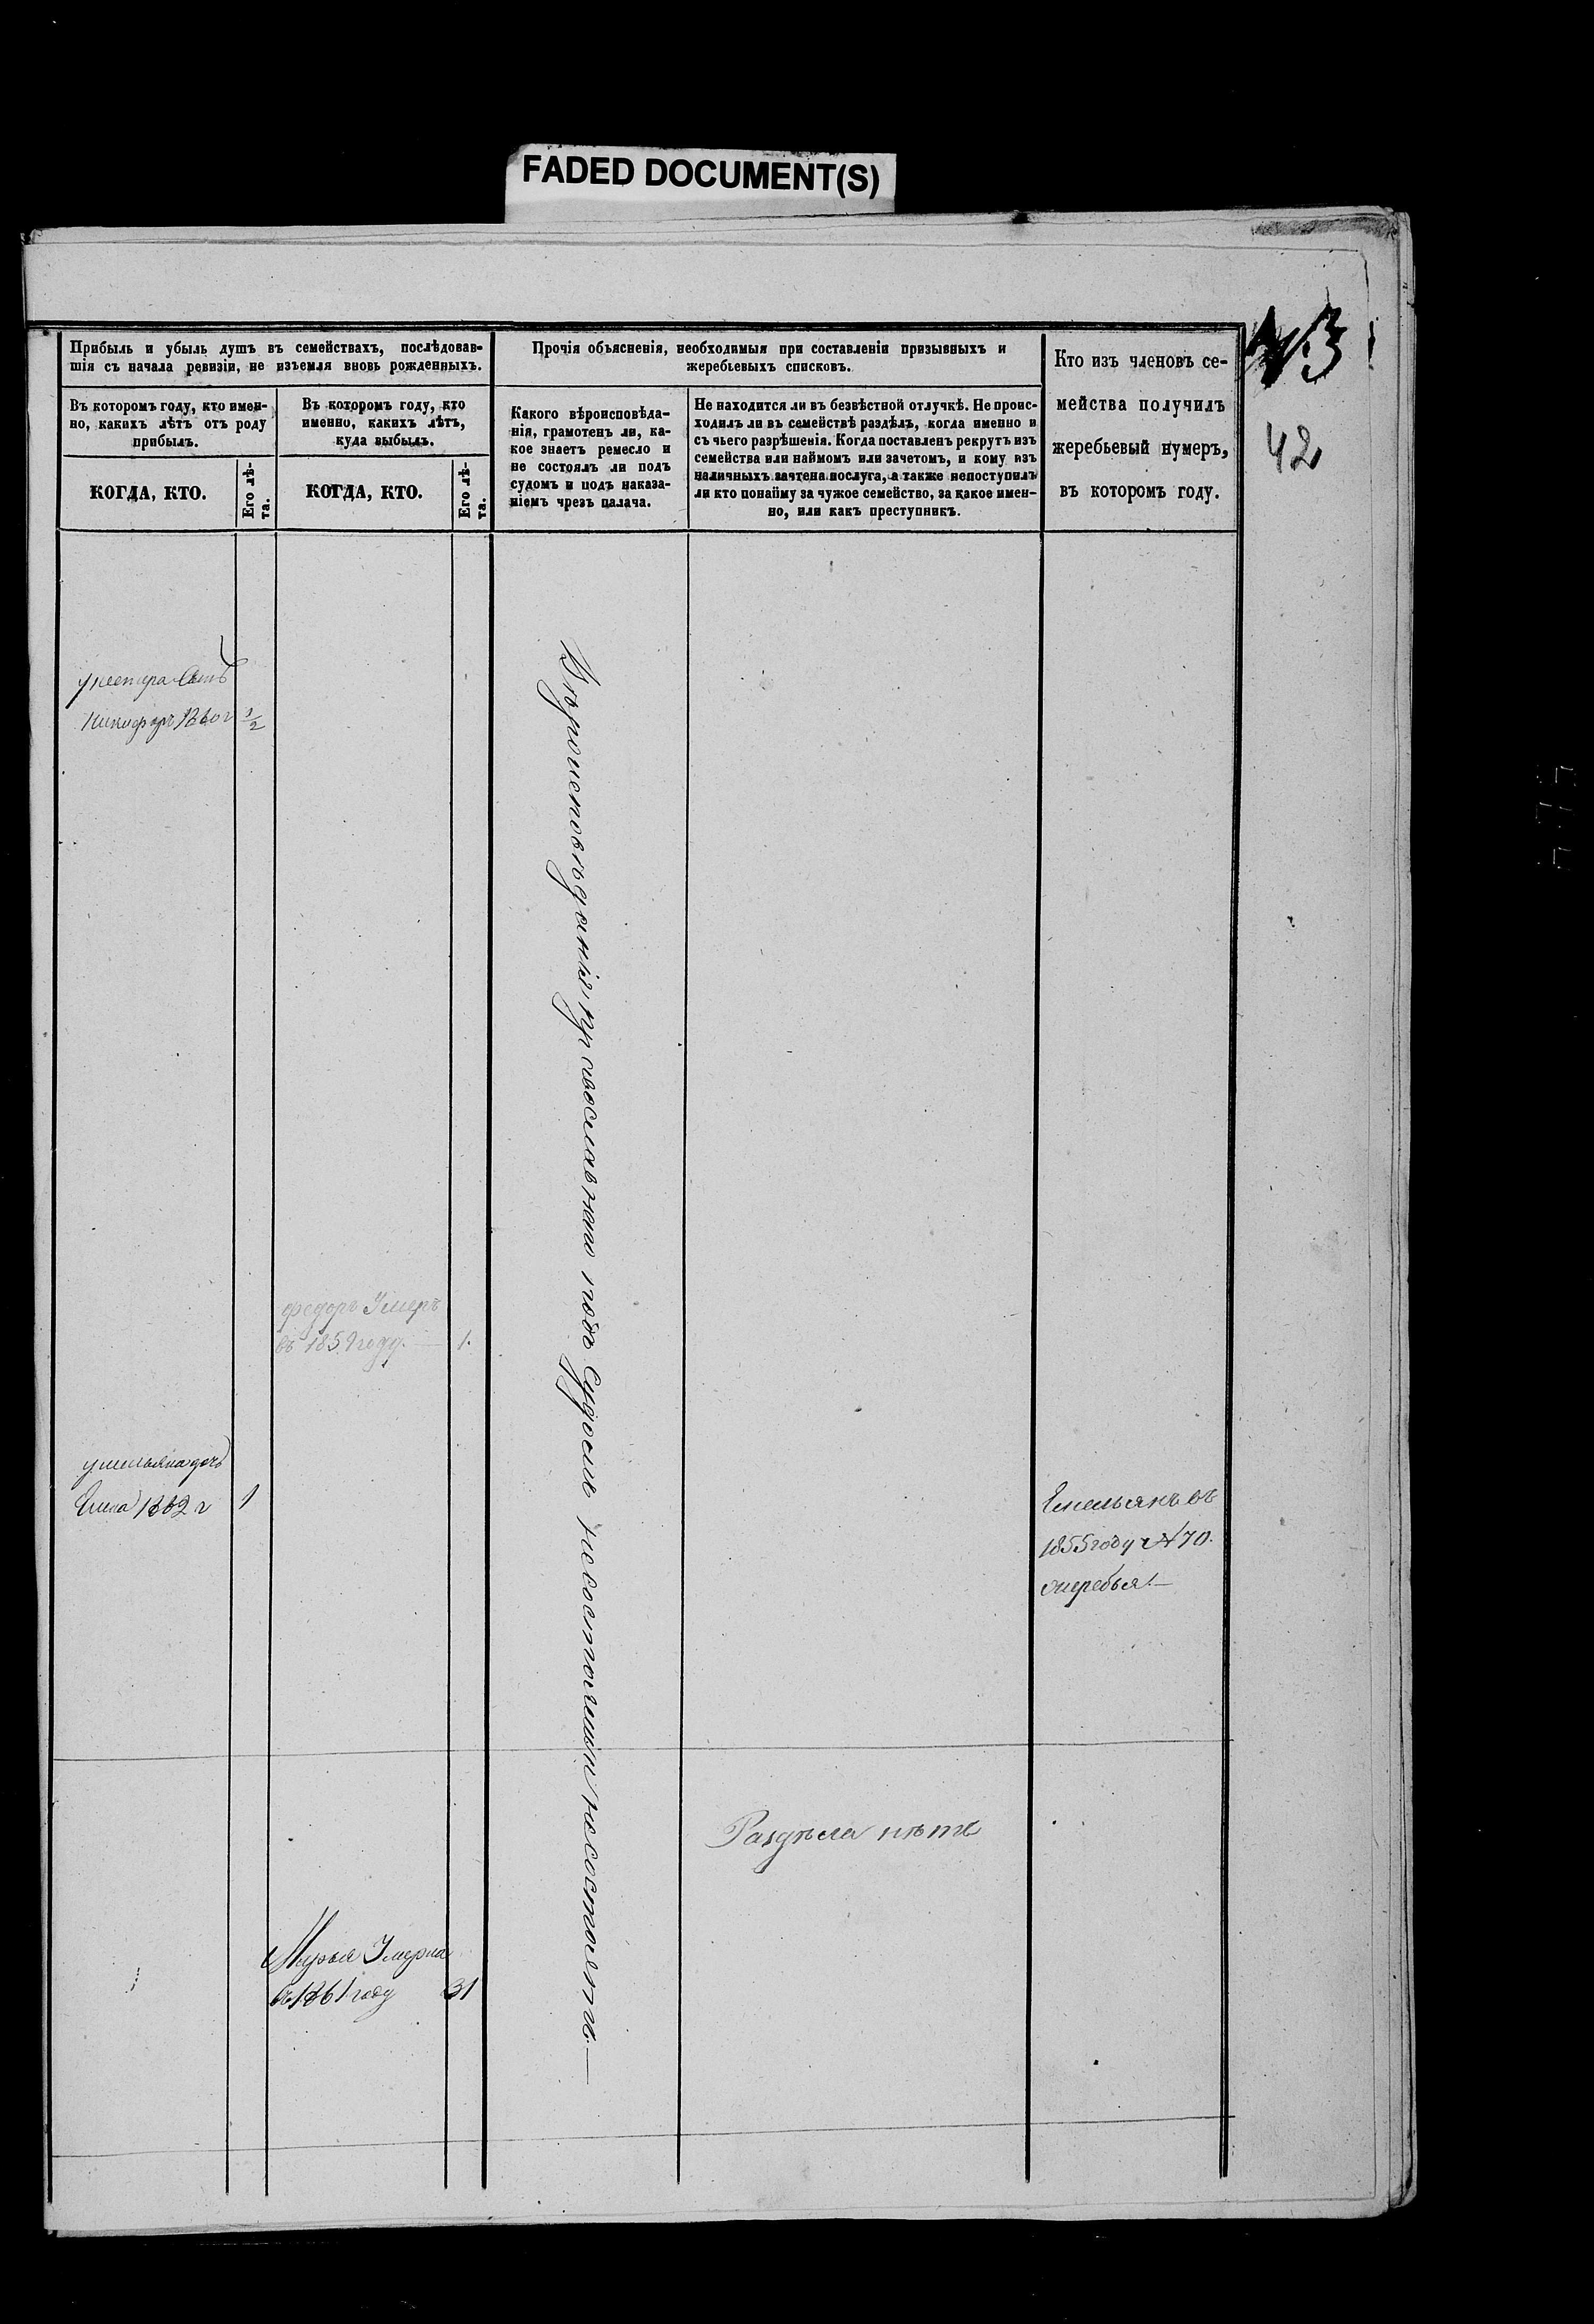 FADED DOCUMENT(S)
43
42
Прибыль и убыль душъ въ семействахъ, послѣдовав-
шія съ начала ревизіи, не изъемля вновь рожденныхъ.
Въ которомъ году, кто имен-
но, какихъ лѣтъ отъ роду
прибылъ.
КОГДА, КТО.
Его лѣ-
та.
Въ которомъ году, кто
именно, какихъ лѣтъ,
куда выбылъ.
КОГДА, КТО.
Его лѣ-
та.
Прочія объясненія, необходимыя при составленіи призывныхъ и
жеребьевыхъ списковъ.
Какого вѣроисповѣда-
нія, грамотенъ ли, ка-
кое знаетъ ремесло и
не состоялъ ли подъ
судомъ и подъ наказа-
ніемъ чрезъ палача.
Не находится ли въ безвѣстной отлучкѣ. Не проис-
ходилъ ли въ семействѣ раздѣлъ, когда именно и
съ чьего разрѣшенія. Когда поставленъ рекрутъ изъ
семейства или наймомъ или зачетомъ, и кому изъ
наличныхъ зачтена послуга, а также непоступилъ
ли кто понайму за чужое семейство, за какое имен-
но, или какъ преступникъ.
Кто изъ членовъ се-
мейства получилъ
жеребьевый нумеръ,
въ которомъ году.
Никифоръ 1860 г 1/2
Федоръ Умеръ
въ 1859 году. — 1.
1862 г 1
Марья Умерла
въ 1861 году 31
Вѣроисповѣданія православнаго подъ Судомъ несостояли и несостоятъ.—
Раздѣла нѣтъ
Емельянъ въ
1855 году № 70.
жеребья.—